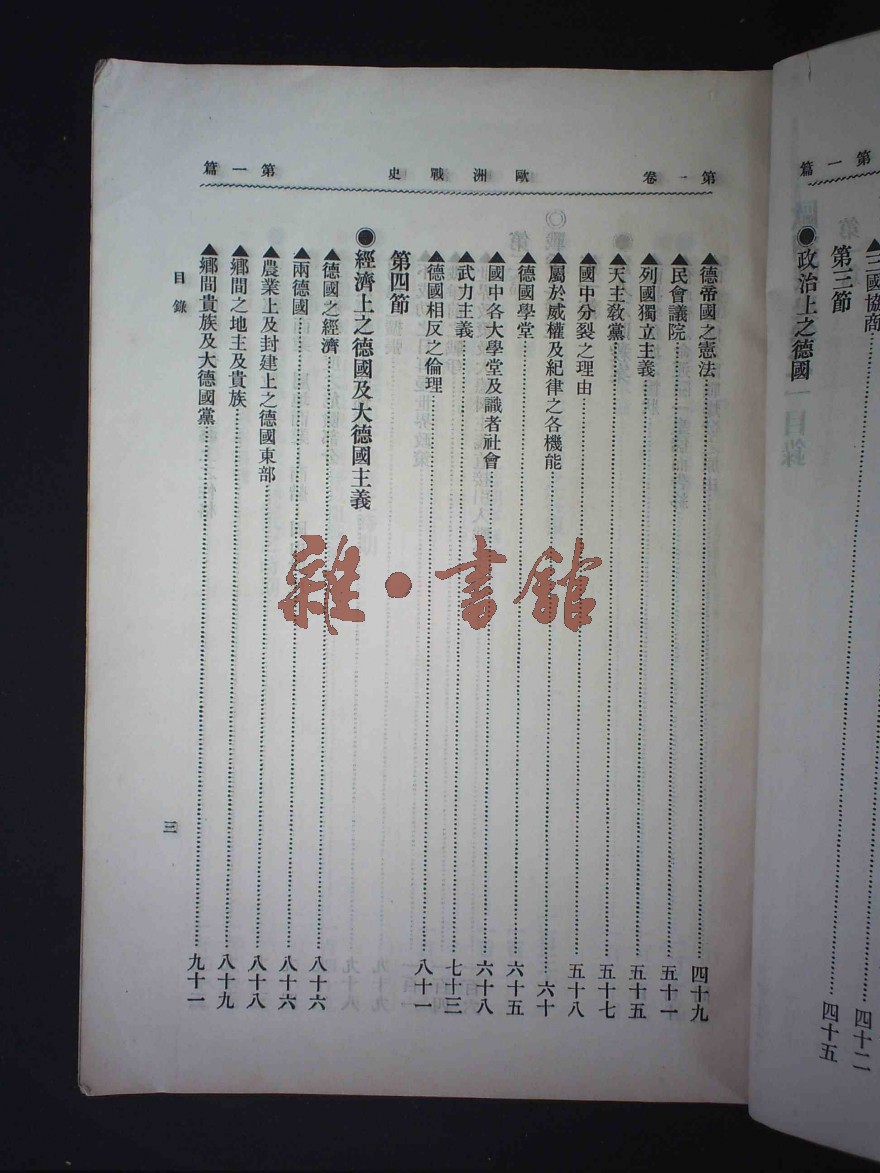 第一篇
▲三國協商……四十二
第三節
●政治上之德國……四十五
第一卷 歐洲戰史 第一篇
▲德帝國之憲法……四十九
▲民會議院……五十一
▲列國獨立主義……五十五
▲天主敎黨……五十七
▲國中分裂之理由……五十八
▲屬於威權及紀律之各機能……六十
▲德國學堂……六十五
▲國中各大學堂及識者社會……六十八
▲武力主義……七十三
▲德國相反之倫理……八十一
第四節
●經濟上之德國及大德國主義
▲德國之經濟……八十六
▲兩德國……八十六
▲農業上及封建上之德國東部……八十八
▲鄉間之地主及貴族……八十九
▲鄉間貴族及大德國黨……九十一
目錄
三
雜·書館